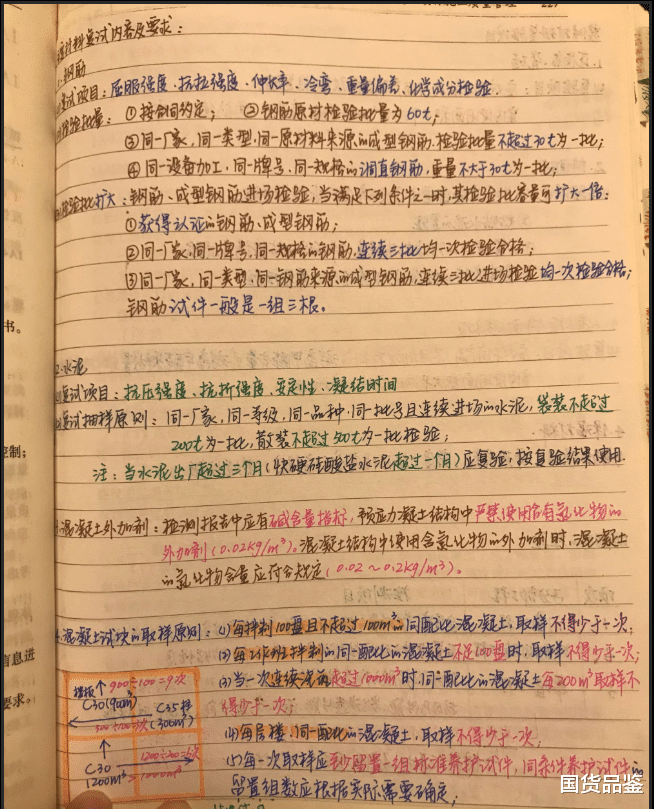 材料复试内容及要求：
1.钢筋
复试项目：屈服强度、抗拉强度、伸长率、冷弯、重量偏差、化学成分检验
检验批量：①按合同约定；②钢筋原材检验批量为60t；
③同一厂家，同一类型，同一原材料来源的成型钢筋，检验批量不超过30t为一批；
④同一设备加工，同一牌号、同一规格的调直钢筋，重量不大于30t为一批；
检验批扩大：钢筋、成型钢筋进场检验，当满足下列条件之一时，其检验批容量可扩大一倍：
①获得认证的钢筋、成型钢筋；
②同一厂家，同一牌号，同一规格的钢筋，连续三批均一次检验合格；
③同一厂家，同一类型，同一钢筋来源的成型钢筋，连续三批进场检验均一次检验合格；
钢筋试件一般是一组三根。
2.水泥
复试项目：抗压强度、抗折强度、安定性、凝结时间
复试抽样原则：同一厂家，同一等级，同一品种，同一批号且连续进场的水泥，袋装不超过
200t为一批，散装不超过500t为一批检验；
注：当水泥出厂超过三个月（快硬硅酸盐水泥超过一个月）应复验，按复验结果使用
混凝土外加剂：检测报告中应有碱含量指标，预应力凝土结构中严禁使用含有氯化物的
外加剂（0.02kg/m³）。混凝土结构中使用含氯化物的外加剂时，混凝土
的氯化物含量应符合规定（0.02～0.2kg/m³）。
4.混凝土试块的取样原则：(1)每拌制100盘且不超过100m³的同配比混凝土，取样不得少于一次；
(2)每工作班拌制的同一配比的混凝土不足100盘时，取样不得少于一次；
(3)当一次连续浇筑超过1000m³时，同一配比的混凝土每200m³取样不
得少于一次；
(4)每层楼、同一配比的混凝土，取样不得少于一次；
(5)每一次取样应至少留置一组标准养护试件，同条件养护试件的
留置组数应根据实际需要确定。
楼板 900÷100=9次
C30(900m³) C35 (300m³)
300÷100=3次
1200÷200=6次
C30
1200m³>1000m³
书。
控制；
信息进
要求。
国货品鉴